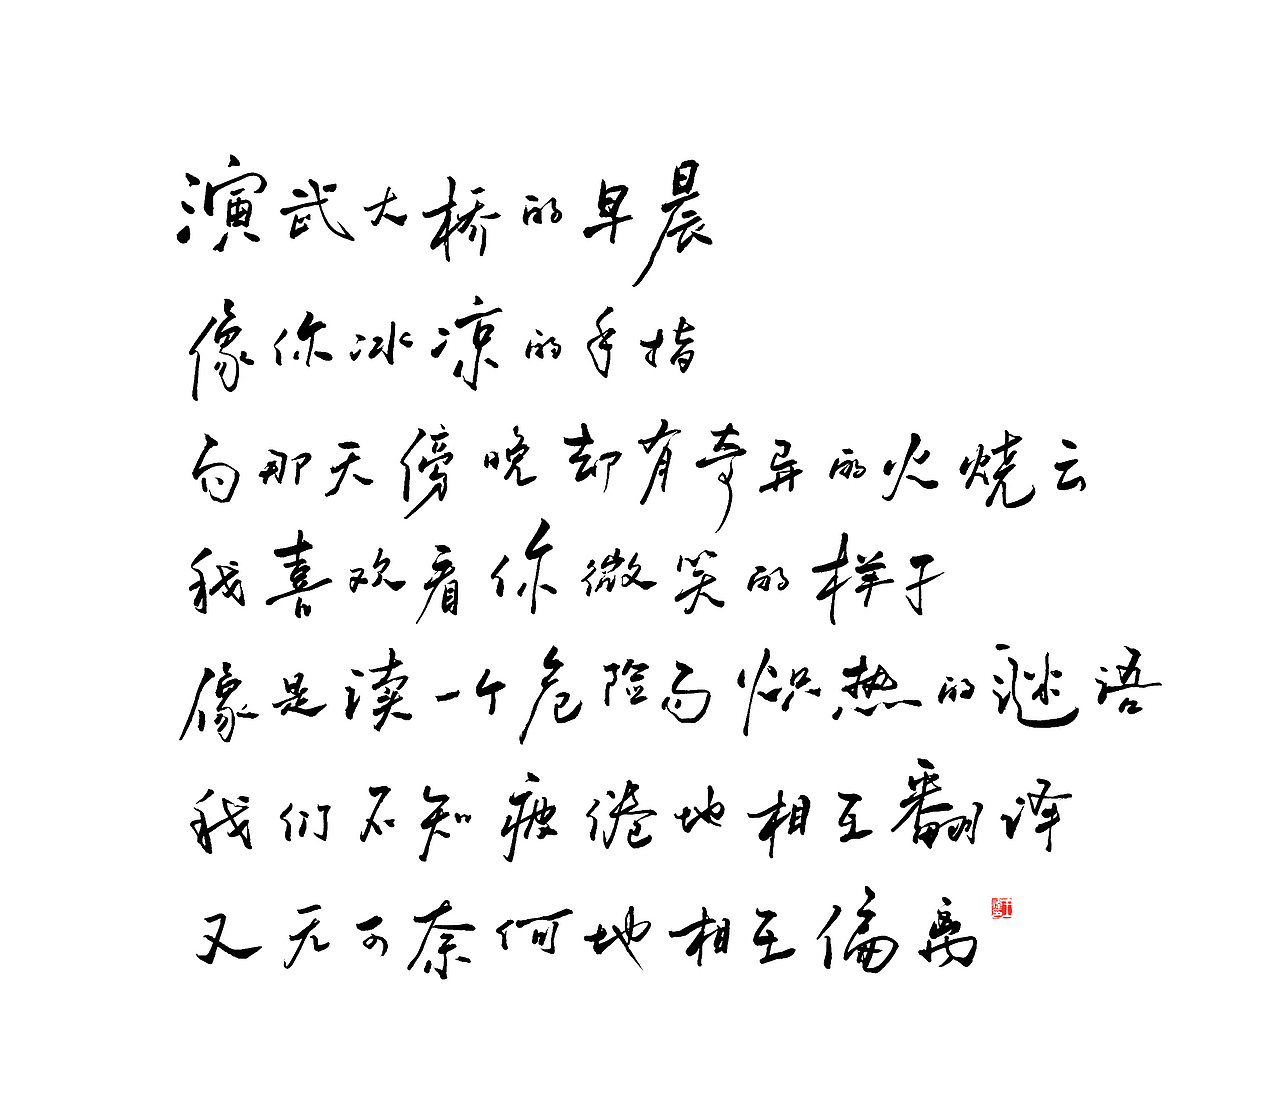 演武大桥的早晨
像你冰凉的手指
而那天傍晚却有奇异的火烧云
我喜欢看你微笑的样子
像是读一个危险而炽热的谜语
我们不知疲倦地相互翻译
又无可奈何地相互偏离